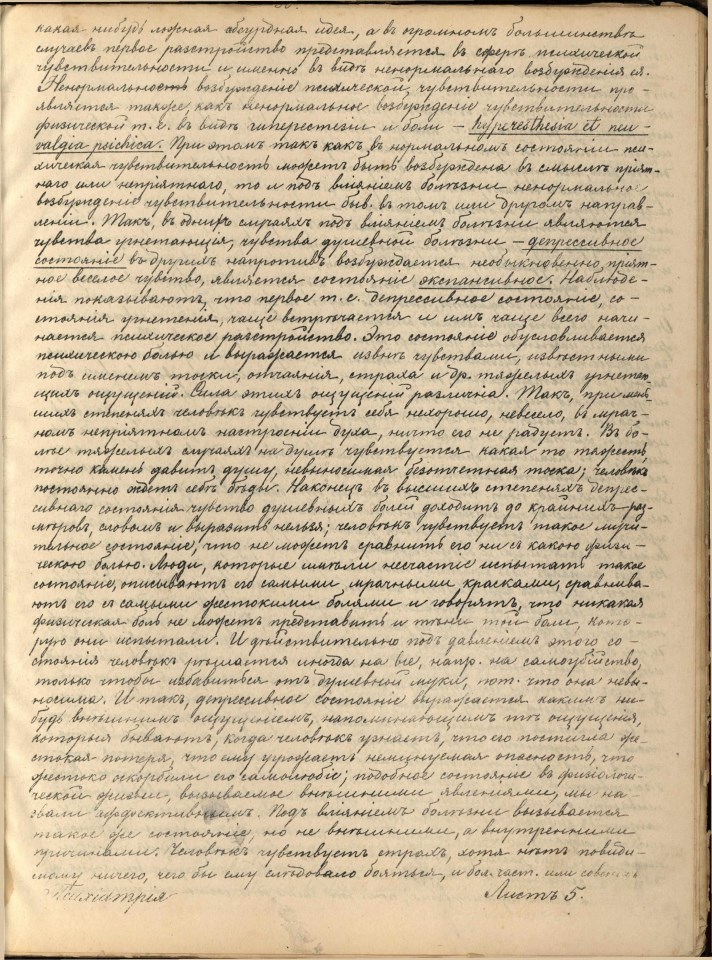 какая нибудь ложная абсурдная идея, а въ огромномъ большинствѣ
случаевъ первое разстройство представляется въ сферѣ психической
чувствительности и именно въ видѣ ненормальнаго возбужденія ея.
Ненормальное возбужденіе психической чувствительности про-
является также, какъ ненормальное возбужденіе чувствительности
физической т. е. въ видѣ гиперестезіи и боли – hyperesthesia et neu-
ralgia psichica. При этомъ такъ какъ въ нормальномъ состояніи пси-
хическая чувствительность можетъ быть возбуждена въ смыслѣ прiят-
наго или непріятнаго, то и подъ вліяніемъ болѣзни ненормальное
возбужденіе чувствительности быв. въ томъ или другомъ направ-
леніи. Такъ, въ однихъ случаяхъ подъ вліяніемъ болѣзни являются
чувства угнетающія, чувства душевной болѣзни – депрессивное
состояніе въ другихъ напротивъ возбуждается необыкновенно прiят-
ное веселое чувство, является состояніе экспансивное. Наблюде-
нія показываютъ, что первое т. е. депрессивное состояніе, со-
стоянія угнетенія, чаще встрѣчается и имъ чаще всего начи-
нается психическое разстройство. Это состояніе обусловливается
психическою болью и выражается извнѣ чувствами, извѣстными
подъ именемъ тоски, отчаянія, страха и др. тяжелыхъ угнетаю-
щихъ ощущеній. Сила этихъ ощущеній различна. Такъ, при низ-
шихъ степеняхъ человѣкъ чувствуетъ себя нехорошо, невесело, въ мрач-
номъ непріятномъ настроеніи духа, ничто его не радуетъ. Въ бо-
лѣе тяжелыхъ случаяхъ на душѣ чувствуется какая то тяжесть
точно камень давитъ душу, невыносимая безотчетная тоска; человѣкъ
постоянно ждетъ себѣ бѣды. Наконецъ въ высшихъ степеняхъ депрес-
сивнаго состоянія чувство душевныхъ болей доходитъ до крайнихъ раз-
мѣровъ, словомъ и выразить нельзя; человѣкъ чувствуетъ такое мучи-
тельное состояніе, что не можетъ сравнить его ни съ какою физи-
ческою болью. Люди, которые имѣли несчастіе испытать такое
состояніе, описываютъ его самыми мрачными красками, сравнива-
ютъ его съ самыми жестокими болями и говорятъ, что никакая
физическая боль не можетъ представить и тѣни той боли, кото-
рую они испытали. И дѣйствительно подъ давленіемъ этого со-
стоянія человѣкъ рѣшается иногда на все, напр. на самоубійство,
только чтобы избавиться отъ душевной муки, пот. что она невы-
носима. И такъ, депрессивное состояніе выражается какимъ ни-
будь внѣшнимъ ощущеніемъ, напоминающемъ тѣ ощущенія,
которыя бываютъ, когда человѣкъ узнаетъ, что его постигла же-
стокая потеря, что ему угрожаетъ неминуемая опасность, что
жестоко оскорбили его самолюбіе; подобное состояніе въ физiологи-
ческой жизни, вызываемое внѣшними явленіями, мы на-
звали аффективнымъ. Подъ вліяніемъ болѣзни вызывается
такое же состояніе, но не внѣшними, а внутренними
причинами. Человѣкъ чувствуетъ страхъ, хотя нѣтъ повиди-
мому ничего, чего бы ему слѣдовало бояться, и боя. част. или
Психіатрія Листъ 5.